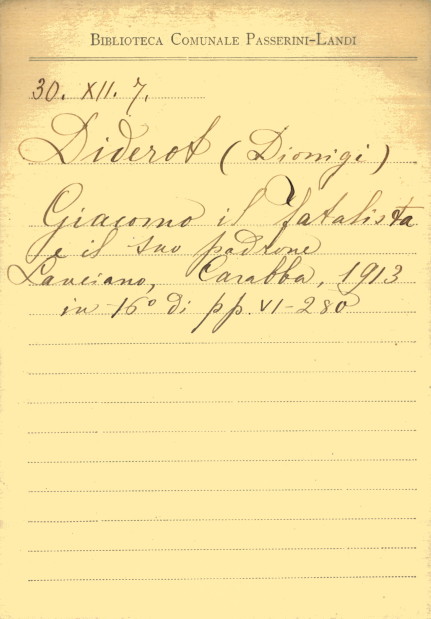 BIBLIOTECA COMUNALE PASSERINI-LANDI
30. XII. 7.
Diderot (Dionigi)
Giacomo il fatalista
e il suo padrone
Lanciano, Carabba, 1913
in 16° di pp. VI-280